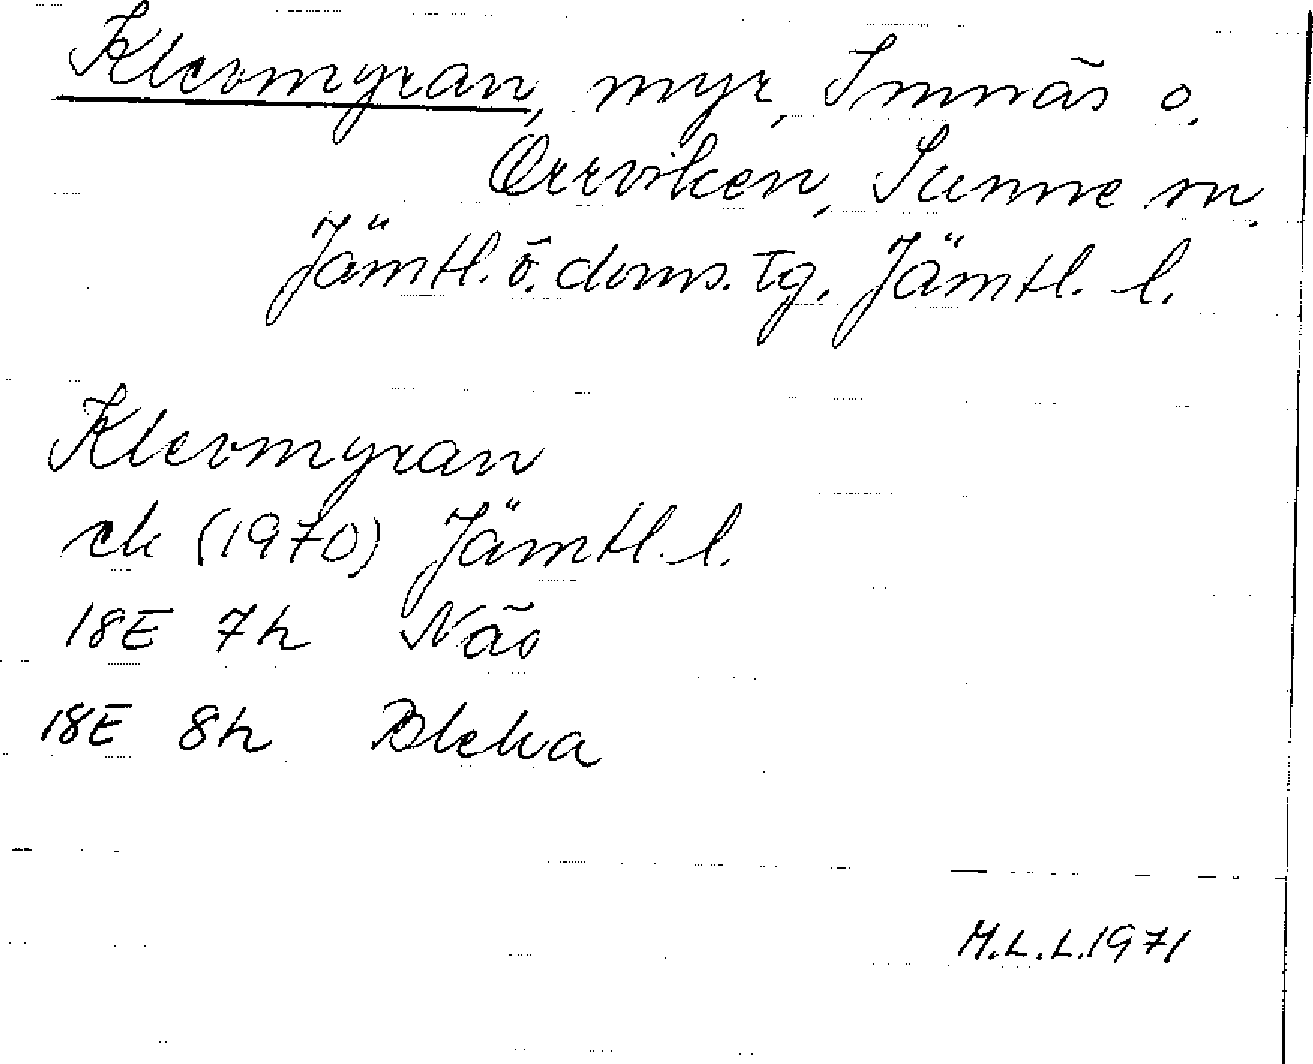 Klevmyran, myr, Imnäs o.
Orrviken, Sunne sn.
Jämtl. ö. doms. tg. Jämtl. l.
Klevmyran
ek (1970) Jämtl. l.
18E 7h Näs
18E 8h Bleka
M.L.L.1971